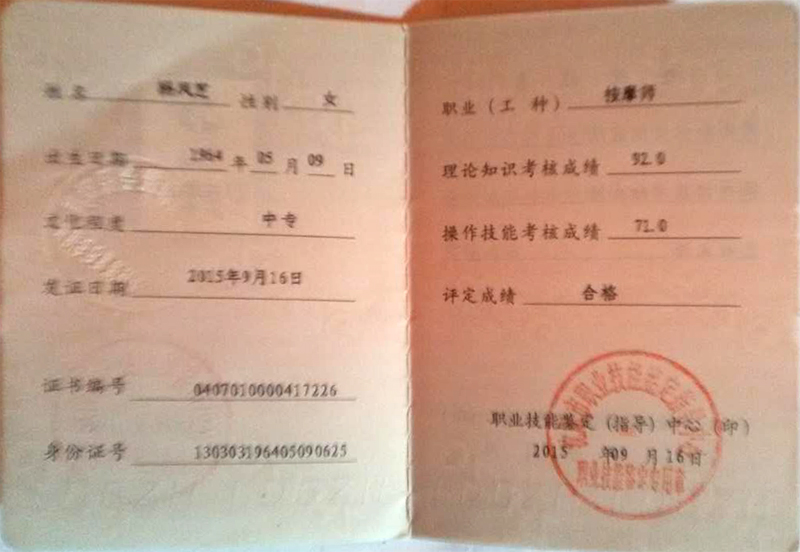 姓名 孙凤芝 性别 女
出生日期 1964 年 05 月 09 日
文化程度 中专
发证日期 2015年9月16日
证书编号 0407010000417226
身份证号 130303196405090625
职业（工 种） 按摩师
理论知识考核成绩 92.0
操作技能考核成绩 71.0
评定成绩 合格
职业技能鉴定（指导）中心（印）
2015 年09 月16日
职业技能鉴定专用章